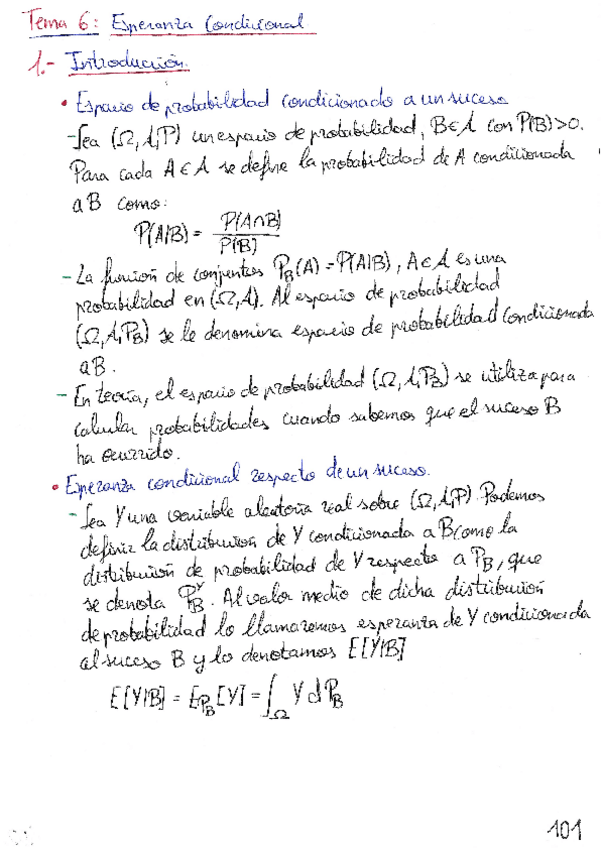 Tema 6: Esperanza Condicional
1.- Introducción.
• Espacio de probabilidad condicionado a un suceso
- Sea (Ω, A, P) un espacio de probabilidad, B ∈ A con P(B) > 0.
Para cada A ∈ A se define la probabilidad de A condicionada
a B como:
P(A|B) = P(A∩B) / P(B)
- La función de conjuntos P_B(A) = P(A|B), A ∈ A es una
probabilidad en (Ω, A). Al espacio de probabilidad
(Ω, A, P_B) se le denomina espacio de probabilidad condicionada
a B.
- En teoría, el espacio de probabilidad (Ω, A, P_B) se utiliza para
calcular probabilidades cuando sabemos que el suceso B
ha ocurrido.
• Esperanza condicional respecto de un suceso.
- Sea Y una variable aleatoria real sobre (Ω, A, P). Podemos
definir la distribución de Y condicionada a B como la
distribución de probabilidad de Y respecto a P_B, que
se denota P_B^Y. Al valor medio de dicha distribución
de probabilidad lo llamaremos esperanza de Y condicionada
al suceso B y lo denotamos E[Y|B]
E[Y|B] = E_{P_B}[Y] = ∫_Ω Y dP_B
101